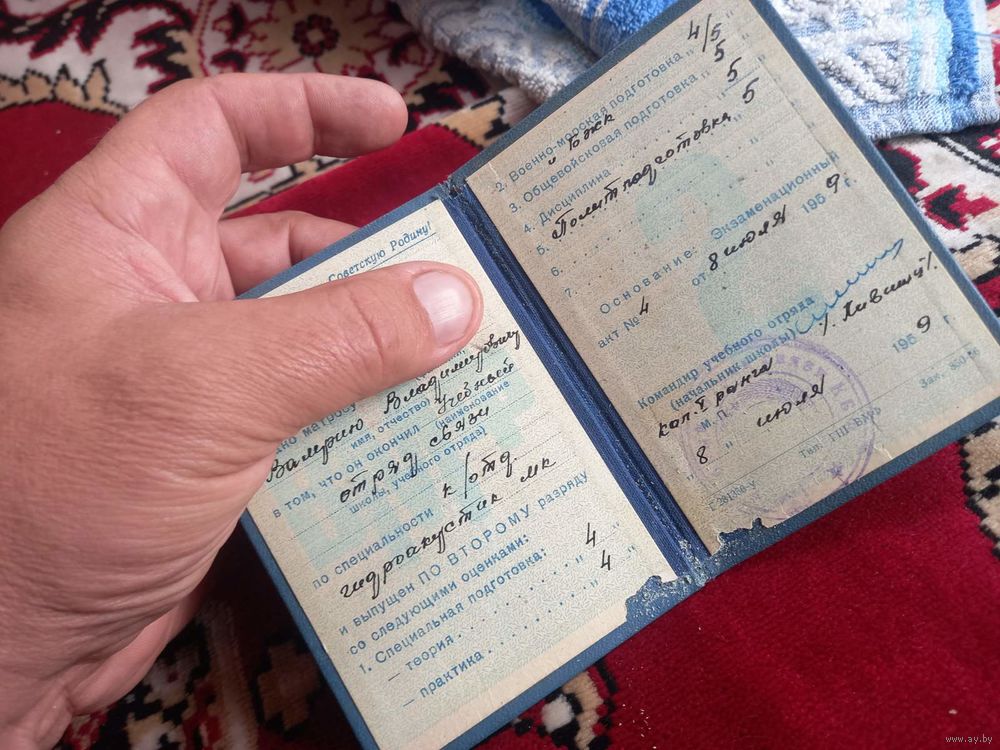 Советскую Родину!
но матросу
Валерию Владимировичу
имя, отчество)
в том, что он окончил Учебный
(наименование
отряд связи
школы, учебного отряда)
к/отд.
по специальности
гидроакустик мк
и выпущен ПО ВТОРОМУ разряду
со следующими оценками:
1. Специальная подготовка:
— теория . . . . . . . „ 4 “
— практика . . . . . . „ 4 “
2. Военно-морская подготовка „ 4/5 “
3. Общевойсковая подготовка „ 5 “
4. Дисциплина „ 5 “
5. Политподготовка „ 5 “
6.
7.
Основание: Экзаменационный
акт № 4 от 8 июля 1959 г.
Командир учебного отряда
(начальник школы)
кап. ранга
М. П.
„ 8 “ июля 1959 г.
Г
Тип. Зак.
www.ay.by